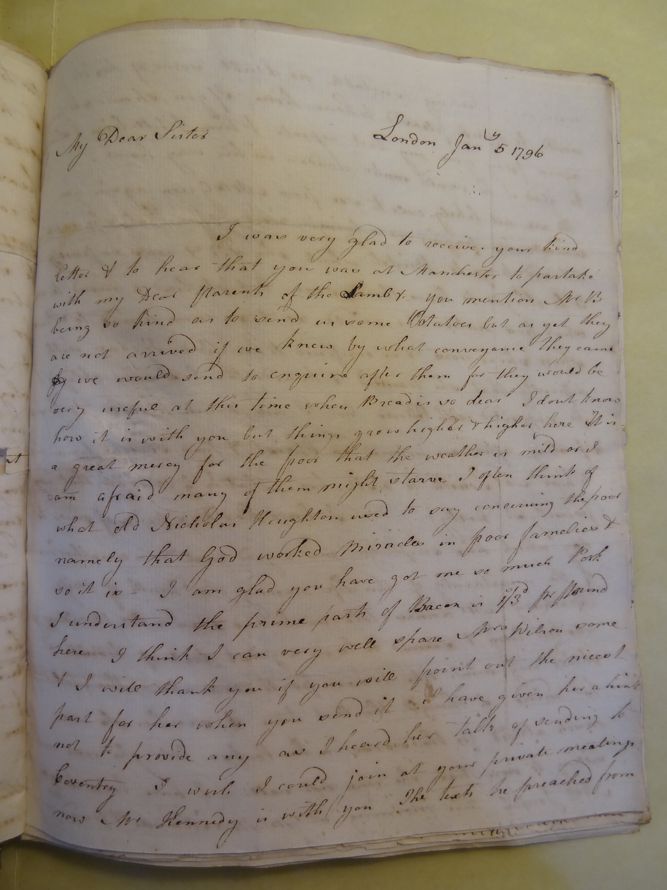 My Dear Sister
London Jany 5 1796
I was very glad to receive your kind
letter & to hear that you was at Manchester to partake
with my Dear Parents of the Lamb &. you mention Mr B
being so kind as to send us some Potatoes but as yet they
are not arrived if we knew by what conveyance they came
by we would send to enquire after them for they would be
very useful at this time when Bread is so dear I dont know
how it is with you but things grow higher & higher here It is
a great mercy for the poor that the weather is mild or I
am afraid many of them might starve I often think of
what old Nicholas Houghton used to say concerning the poor
namely that God worked Miracles in poor families &
so it is - I am glad you have got me so much Pork
I understand the prime parts of Bacon is 1/3d pr Pound
here I think I can very well spare Mrs Wilson some
& I will thank you if you will point out the nicest
part for her when you send it I have given her a hint
not to provide any as I heard her talk of sending to
Coventry I wish I could join at your private meetings
now Mr Kennedy is with you The texts he preached from